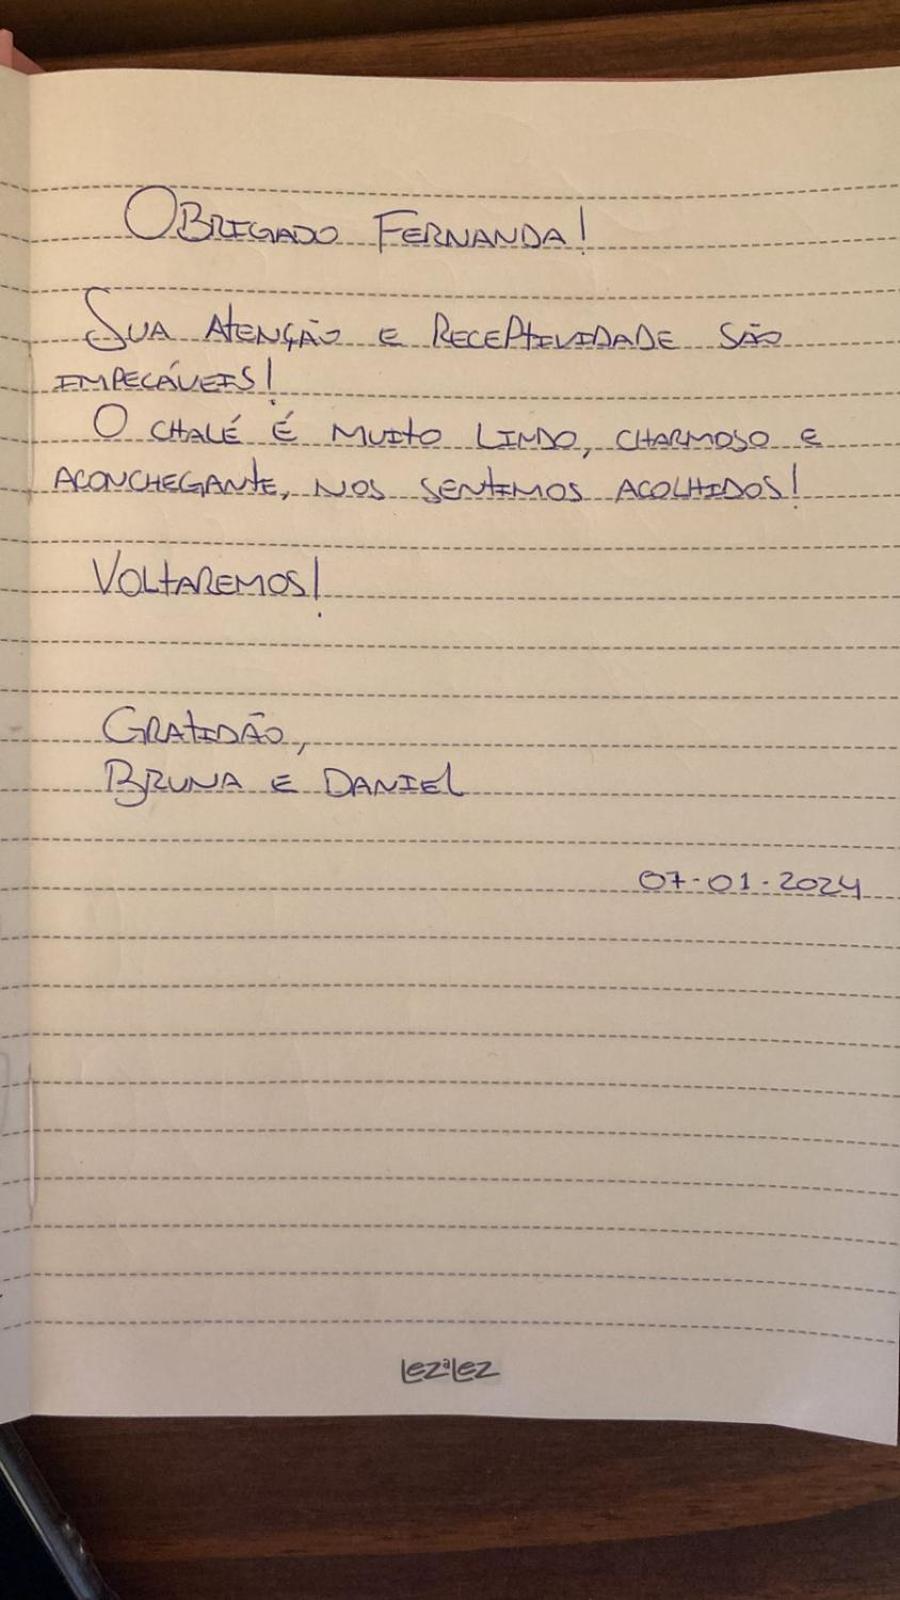 OBRIGADO FERNANDA!
SUA ATENÇÃO E RECEPTIVIDADE SÃO
IMPECÁVEIS!
O CHALÉ É MUITO LINDO, CHARMOSO E
ACONCHEGANTE, NOS SENTIMOS ACOLHIDOS!
VOLTAREMOS!
GRATIDÃO,
BRUNA E DANIEL
07-01-2024
LEZALEZ